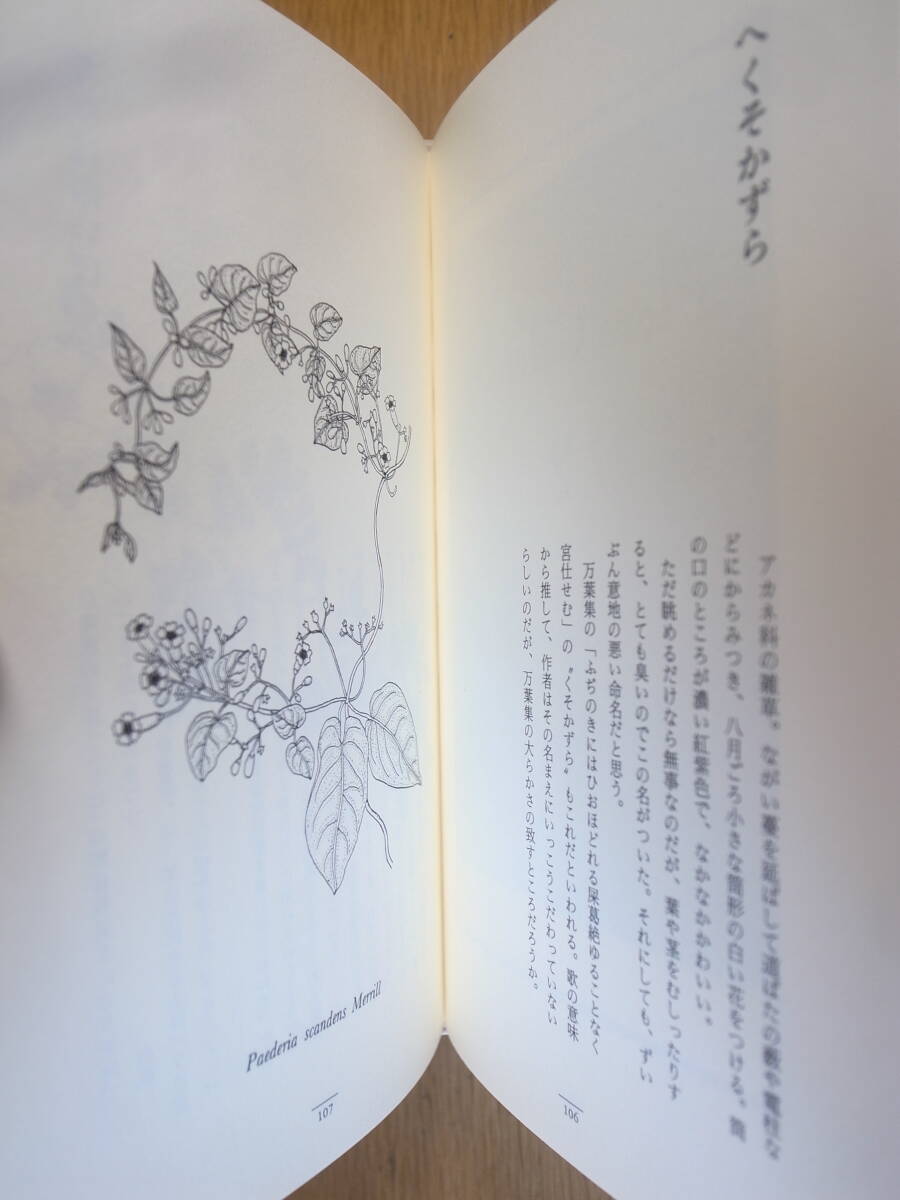 へくそかずら
アカネ科の雑草。ながい蔓を延ばして道ばたの藪や電柱な
どにからみつき、八月ごろ小さな筒形の白い花をつける。筒
の口のところが濃い紅紫色で、なかなかかわいい。
ただ眺めるだけなら無事なのだが、葉や茎をむしったりす
ると、とても臭いのでこの名がついた。それにしても、ずい
ぶん意地の悪い命名だと思う。
万葉集の「ふぢのきにはひおほどれる屎葛絶ゆることなく
宮仕せむ」の〝くそかずら〟もこれだといわれる。歌の意味
から推して、作者はその名まえにいっこうこだわっていない
らしいのだが、万葉集の大らかさの致すところだろうか。
106
Paederia scandens Merrill
107